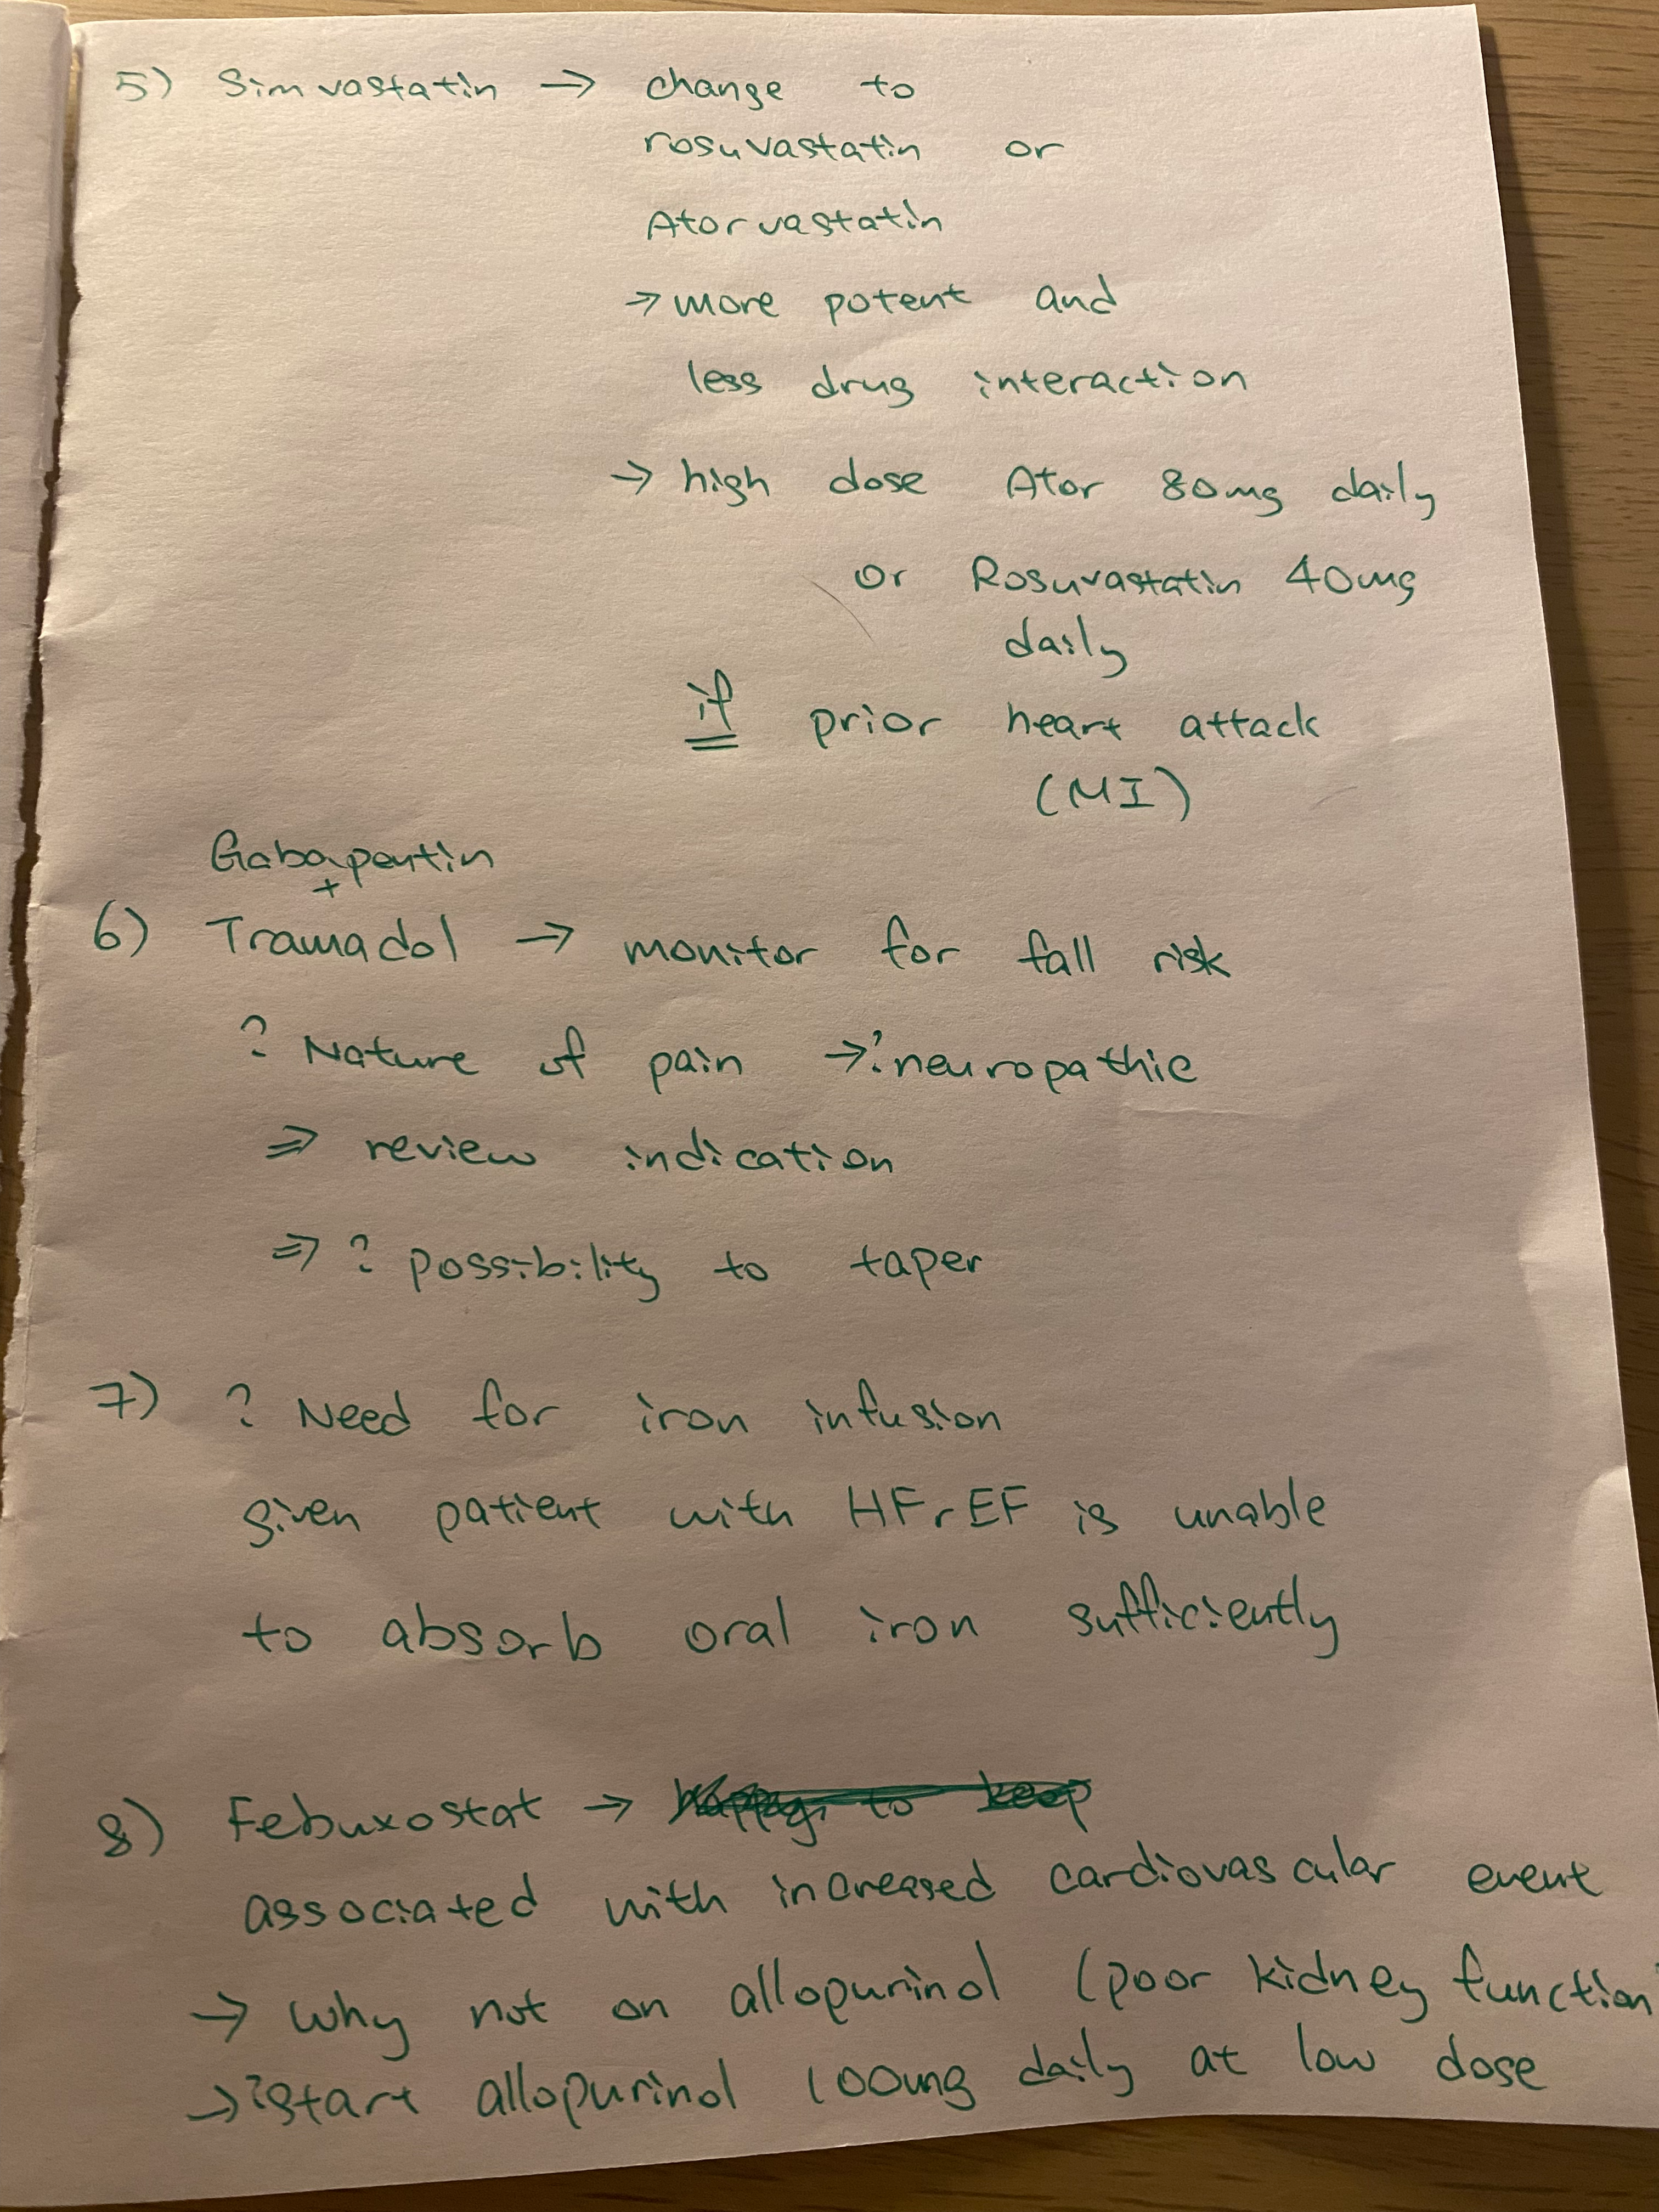 5) Simvastatin → change to
rosuvastatin or
Atorvastatin
→ more potent and
less drug interaction
→ high dose Ator 80mg daily
or Rosuvastatin 40mg
daily
if prior heart attack
(MI)
Gabapentin
+
6) Tramadol → monitor for fall risk
? Nature of pain →? neuropathic
⇒ review indication
⇒ ? possibility to taper
7) ? Need for iron infusion
given patient with HFrEF is unable
to absorb oral iron sufficiently
8) Febuxostat → happy to keep
associated with increased cardiovascular event
→ why not on allopurinol (poor kidney function
→ ?start allopurinol 100mg daily at low dose